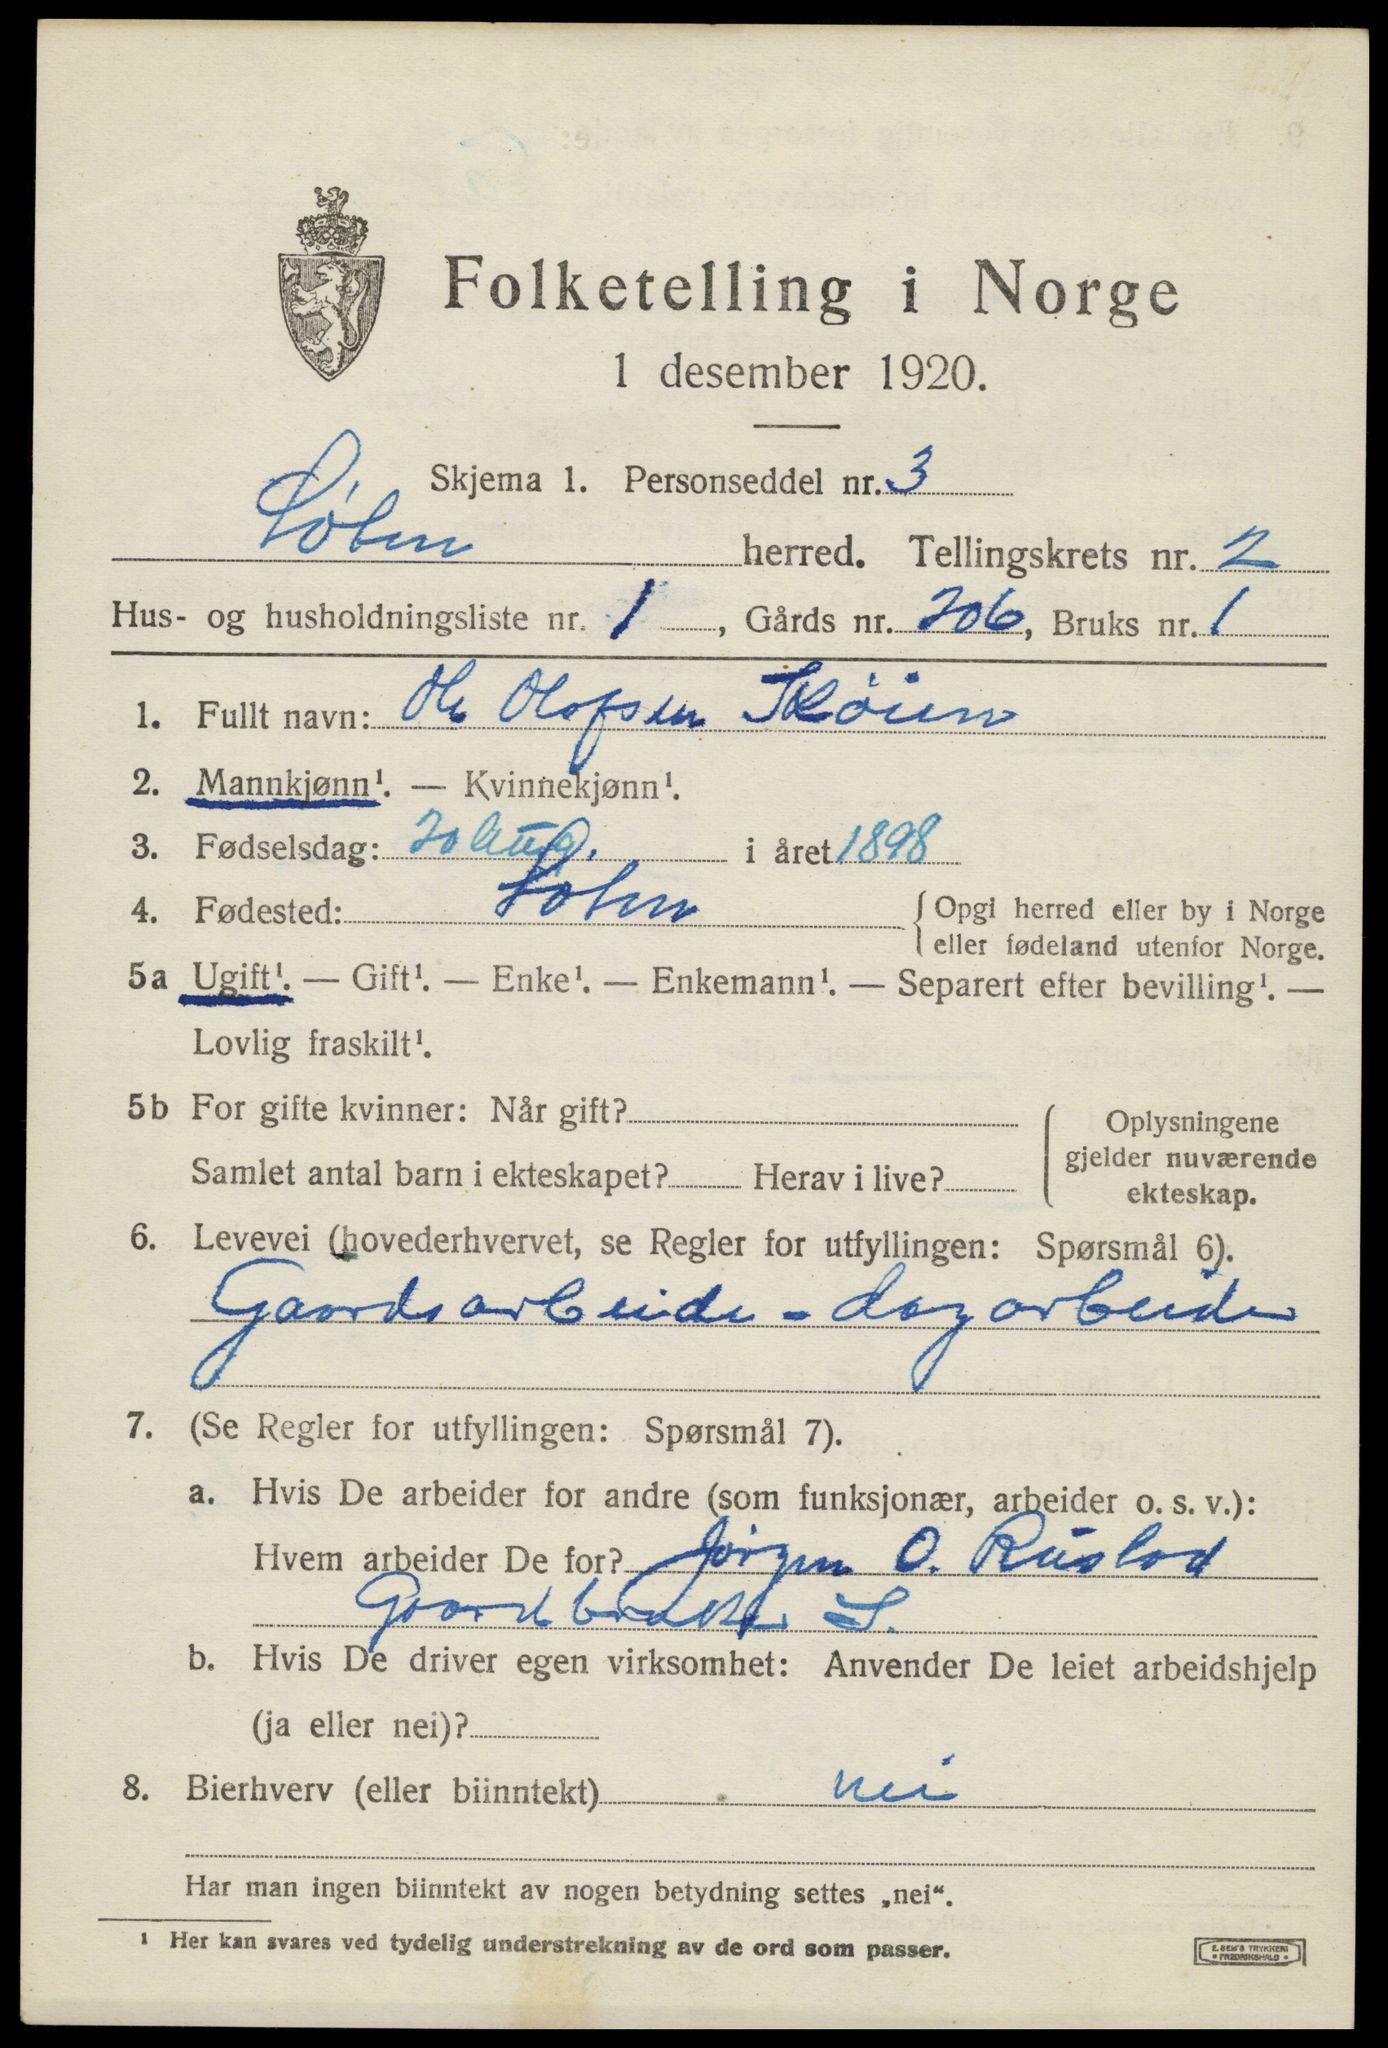 Folketelling i Norge
1 desember 1920.
Skjema 1. Personseddel nr. 3
Løten herred. Tellingskrets nr. 2
Hus- og husholdningsliste nr. 1, Gårds nr. 206, Bruks nr. 1
1. Fullt navn: Ole Olofsen Skøien
2. Mannkjønn¹. — Kvinnekjønn¹.
3. Fødselsdag: 20 Aug. i året 1898
4. Fødested: Løten { Opgi herred eller by i Norge
eller fødeland utenfor Norge.
5a Ugift¹. — Gift¹. — Enke¹. — Enkemann¹. — Separert efter bevilling¹. —
Lovlig fraskilt¹.
5b For gifte kvinner: Når gift?
Samlet antal barn i ekteskapet? Herav i live?
Oplysningene
gjelder nuværende
ekteskap.
6. Levevei (hovederhvervet, se Regler for utfyllingen: Spørsmål 6).
Gaardsarbeide - dagarbeider
7. (Se Regler for utfyllingen: Spørsmål 7).
a. Hvis De arbeider for andre (som funksjonær, arbeider o. s. v.):
Hvem arbeider De for? Jørgen O. Rustad
Gaardbruker S.
b. Hvis De driver egen virksomhet: Anvender De leiet arbeidshjelp
(ja eller nei)?
8. Bierhverv (eller biinntekt) nei
Har man ingen biinntekt av nogen betydning settes „nei“.
¹ Her kan svares ved tydelig understrekning av de ord som passer.
E. SEM'S TRYKKERI
• FREDRIKSHALD •